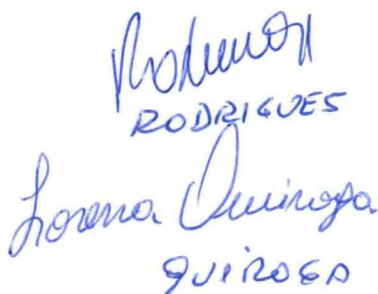 RODRIGUES
Lorena Quiroga
QUIROGA